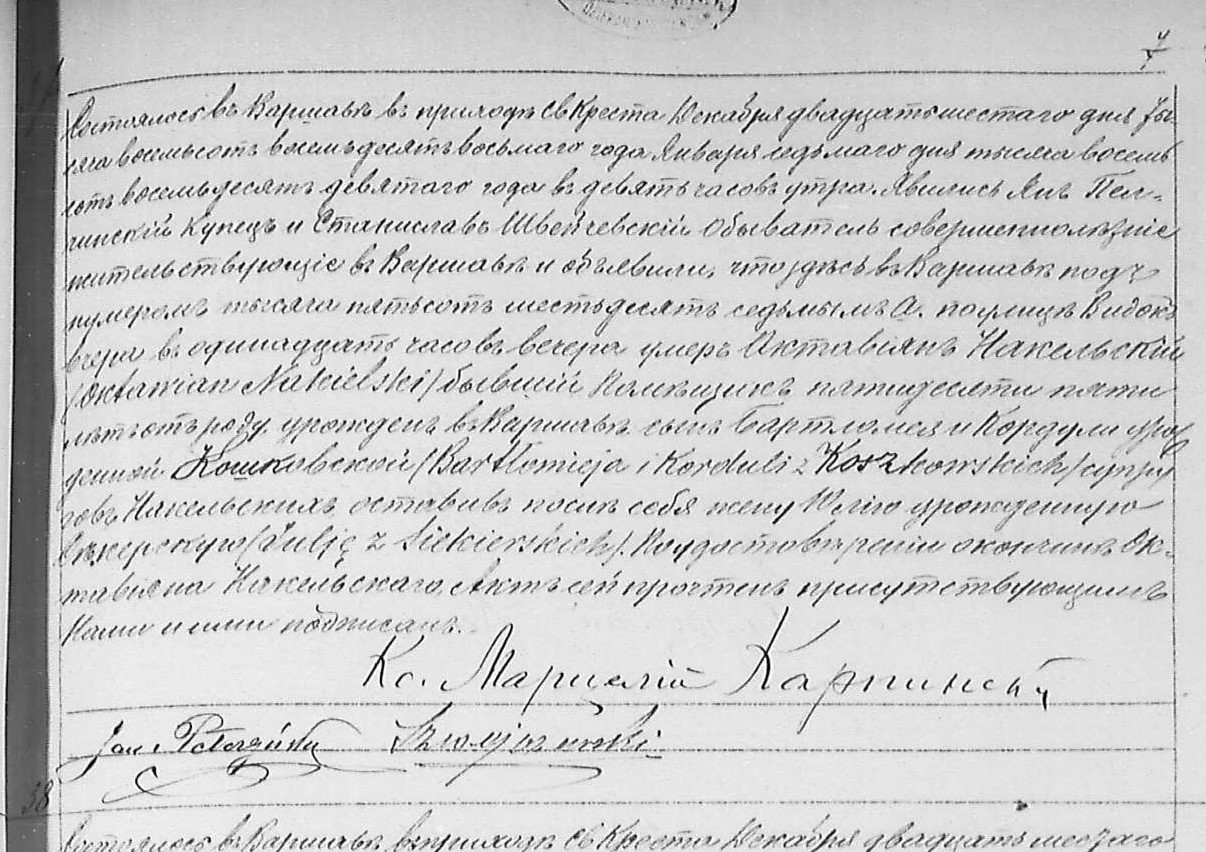 4
7
Состоялось въ Варшавѣ въ приходѣ Св Креста Декабря двадцать шестаго дня Ты-
сяча восемьсотъ восемьдесятъ восьмаго года Января седьмаго дня тысяча восемь
сотъ восемьдесятъ девятаго года въ девять часовъ утра. Явились Янъ Пел-
чинскій Купецъ и Станиславъ Швейчевскій Обыватель совершеннолѣтніе
жительствующіе въ Варшавѣ и объявили, что здѣсь въ Варшавѣ подъ
нумеромъ тысяча пятьсотъ шестьдесятъ седьмымъ А. по улицѣ Видокъ
вчера въ одинадцать часовъ вечера умеръ Октавіянъ Накельскій
/Oktawian Nakielski/ бывшій Помѣщикъ пятидесяти пяти
лѣтъ отъ роду урожденъ въ Варшавѣ сынъ Бартломея и Кордули урож
денной Кошковской /Bartłomieja i Korduli z Koszkowskich/ супру
говъ Накельскихъ, оставивъ послѣ себя жену Юлію урожденную
Сѣкерскую /Julję z Siekierskich/. По удостовѣреніи окончинѣ Ок-
тавіяна Накельскаго, Актъ сей прочтенъ присутствующимъ
Нами и ими подписанъ.
Кс. Марцелій Карпинскій
Jan Pełczyński
38
Состоялось въ Варшавѣ въ приходѣ Св Креста Декабря двадцать шестаго